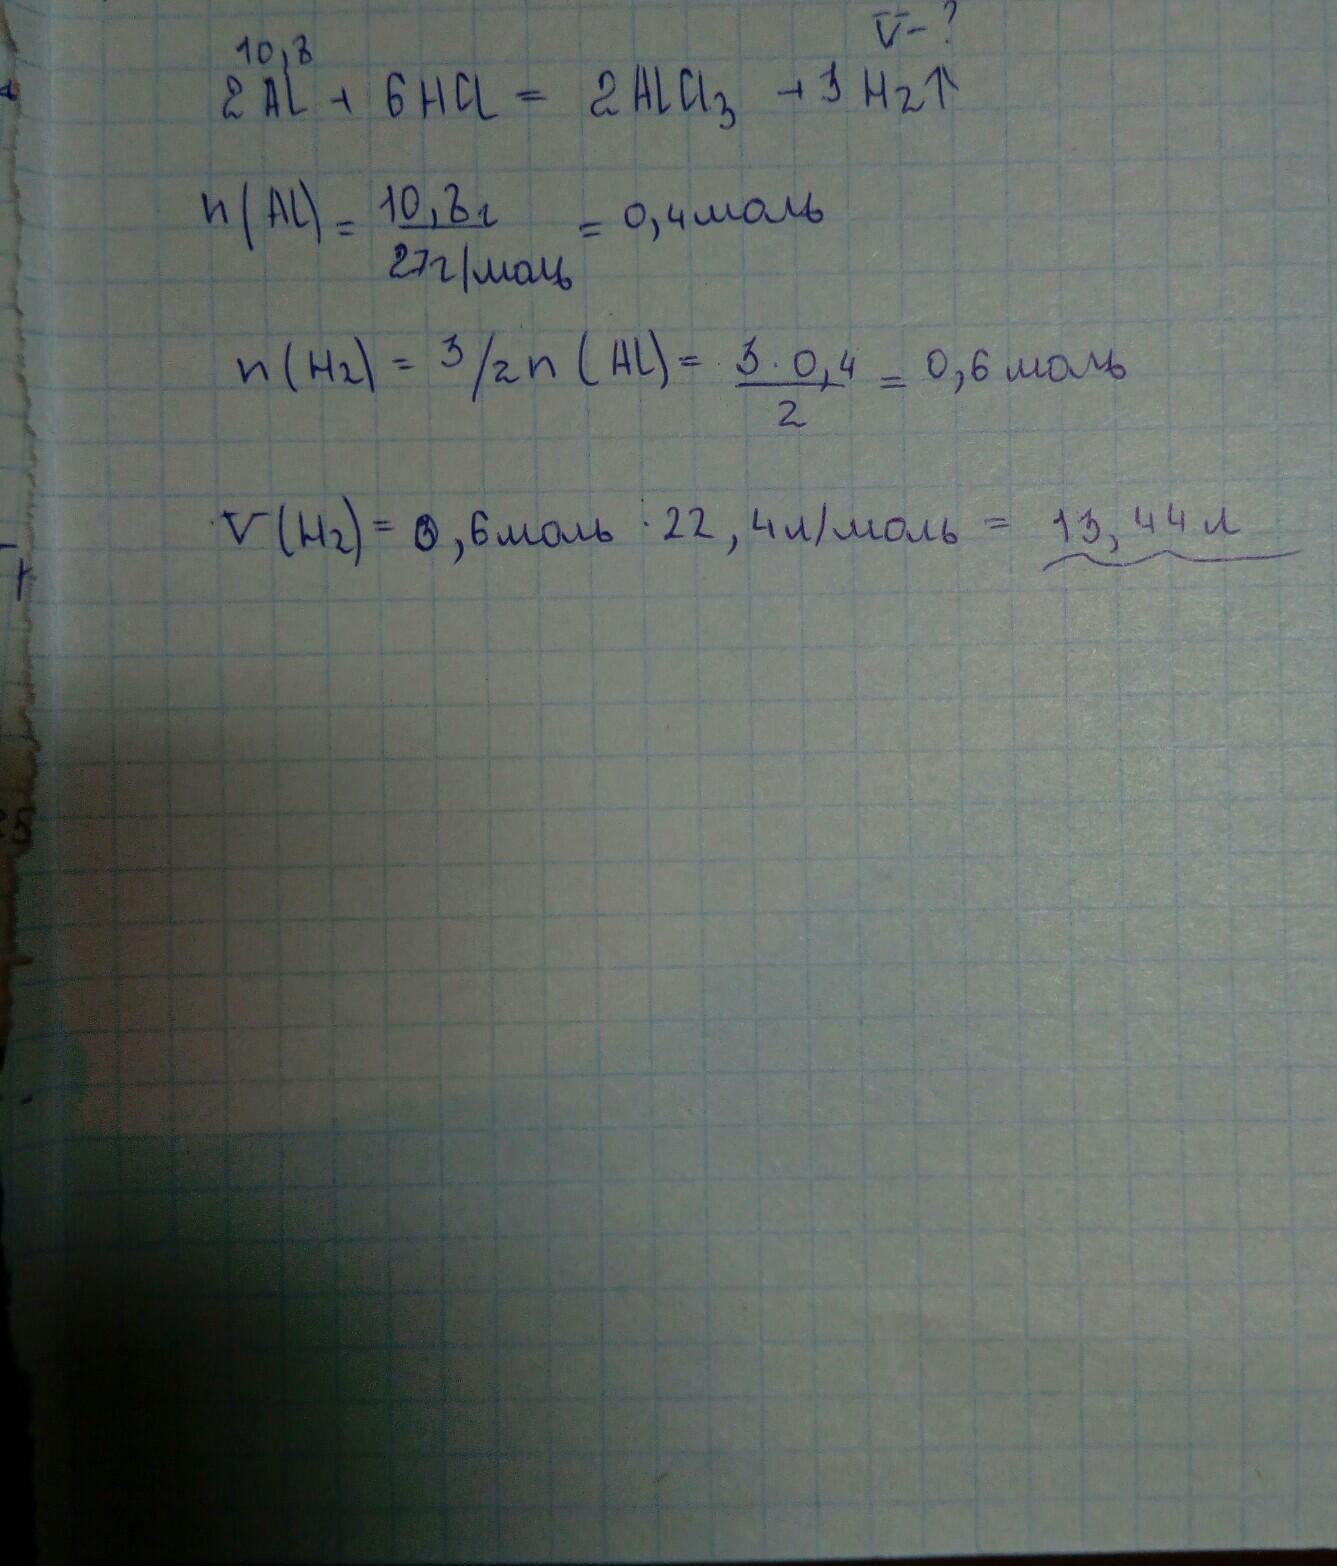 V-?
10,8
2Al + 6HCl = 2AlCl3 + 3H2↑
n(Al) = 10,8г / 27г/моль = 0,4моль
n(H2) = 3/2n(Al) = 3·0,4 / 2 = 0,6моль
V(H2) = 0,6моль·22,4л/моль = 13,44л